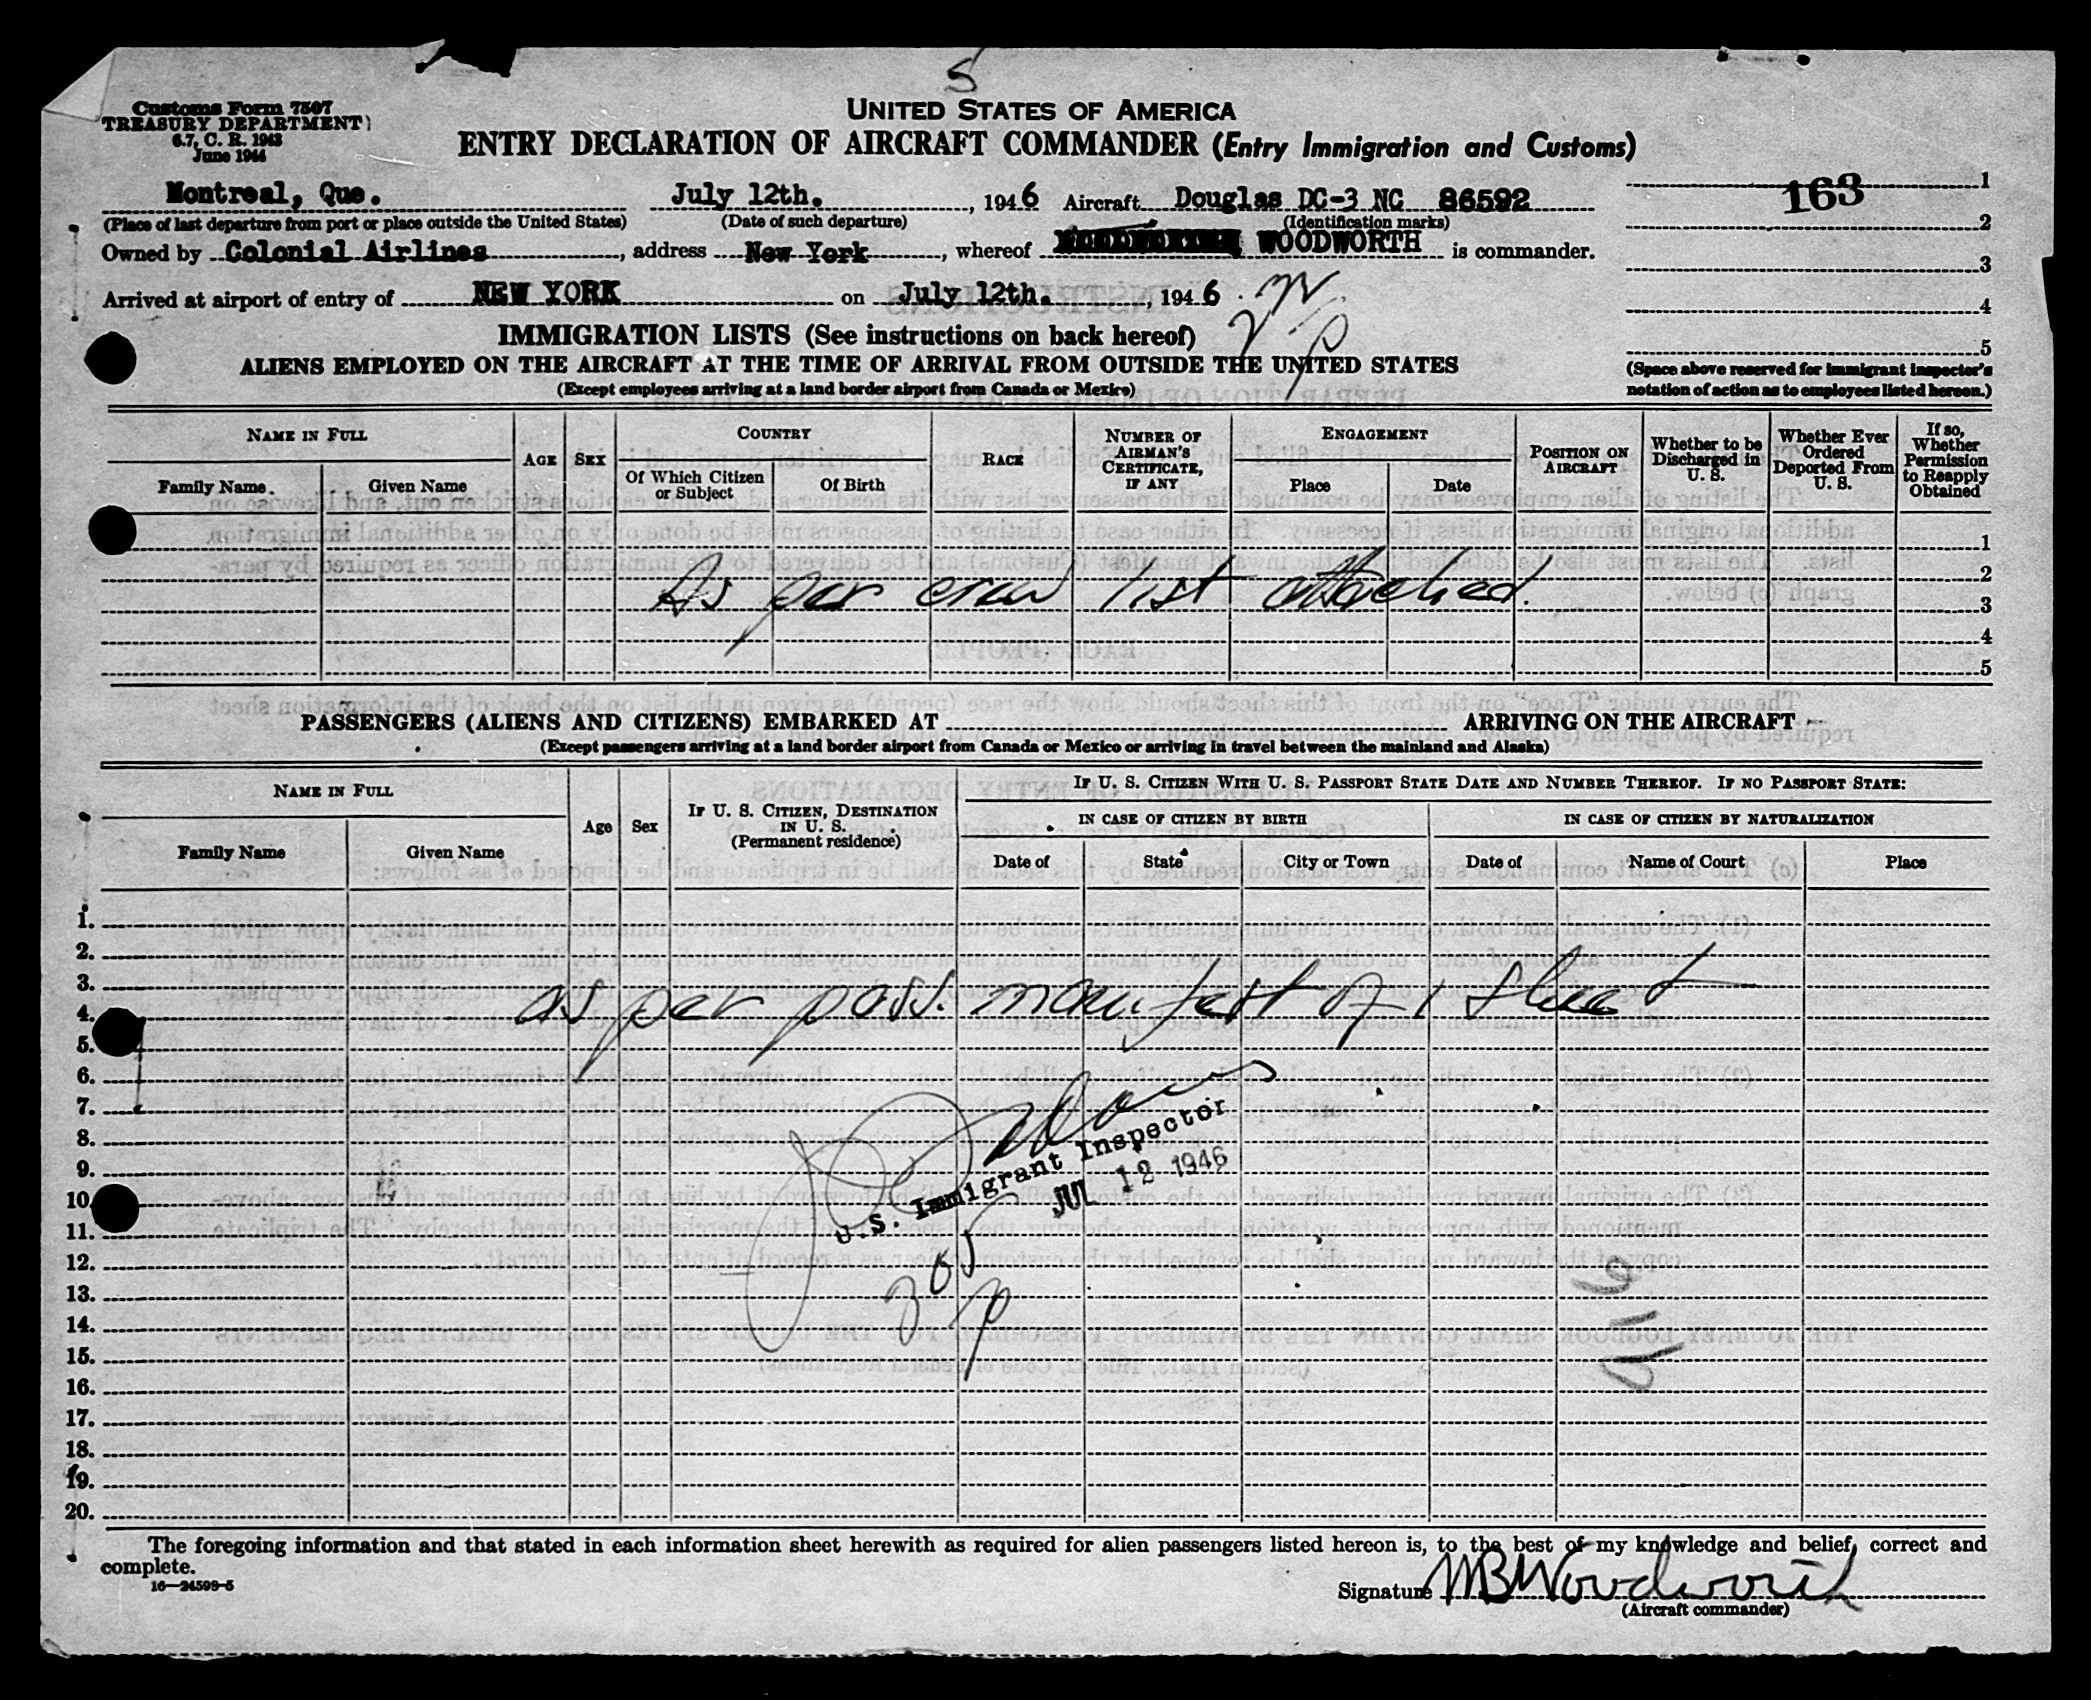 5
Customs Form 7507
TREASURY DEPARTMENT
6.7, C. R. 1943
June 1944
UNITED STATES OF AMERICA
ENTRY DECLARATION OF AIRCRAFT COMMANDER (Entry Immigration and Customs)
Montreal, Que. July 12th. , 1946 Aircraft Douglas DC-3 NC 86592
(Place of last departure from port or place outside the United States) (Date of such departure) (Identification marks)
Owned by Colonial Airlines , address New York , whereof WOODWORTH is commander.
Arrived at airport of entry of NEW YORK on July 12th. , 1946
163
1
2
3
4
5
(Space above reserved for immigrant inspector's
notation of action as to employees listed hereon.)
IMMIGRATION LISTS (See instructions on back hereof)
ALIENS EMPLOYED ON THE AIRCRAFT AT THE TIME OF ARRIVAL FROM OUTSIDE THE UNITED STATES
(Except employees arriving at a land border airport from Canada or Mexico)
NAME IN FULL
Family Name
Given Name
AGE
SEX
COUNTRY
Of Which Citizen or Subject
Of Birth
RACE
NUMBER OF AIRMAN'S CERTIFICATE, IF ANY
ENGAGEMENT
Place
Date
POSITION ON AIRCRAFT
Whether to be Discharged in U. S.
Whether Ever Ordered Deported From U. S.
If so, Whether Permission to Reapply Obtained
1
2
As per crew list attached.
3
4
5
PASSENGERS (ALIENS AND CITIZENS) EMBARKED AT ARRIVING ON THE AIRCRAFT
(Except passengers arriving at a land border airport from Canada or Mexico or arriving in travel between the mainland and Alaska)
NAME IN FULL
Family Name
Given Name
Age
Sex
IF U. S. CITIZEN, DESTINATION IN U. S.
(Permanent residence)
IF U. S. CITIZEN WITH U. S. PASSPORT STATE DATE AND NUMBER THEREOF. IF NO PASSPORT STATE:
IN CASE OF CITIZEN BY BIRTH
Date of
State
City or Town
IN CASE OF CITIZEN BY NATURALIZATION
Date of
Name of Court
Place
1.
2.
3.
as per pass. manifest of 1 sheet
4.
5.
6.
7.
8.
9.
10
11.
12.
13.
14.
15.
16.
17.
18.
19.
20.
U.S. Immigrant Inspector
JUL 12 1946
305
p
The foregoing information and that stated in each information sheet herewith as required for alien passengers listed hereon is, to the best of my knowledge and belief, correct and
complete.
16—24598-5
Signature MB Woodworth
(Aircraft commander)